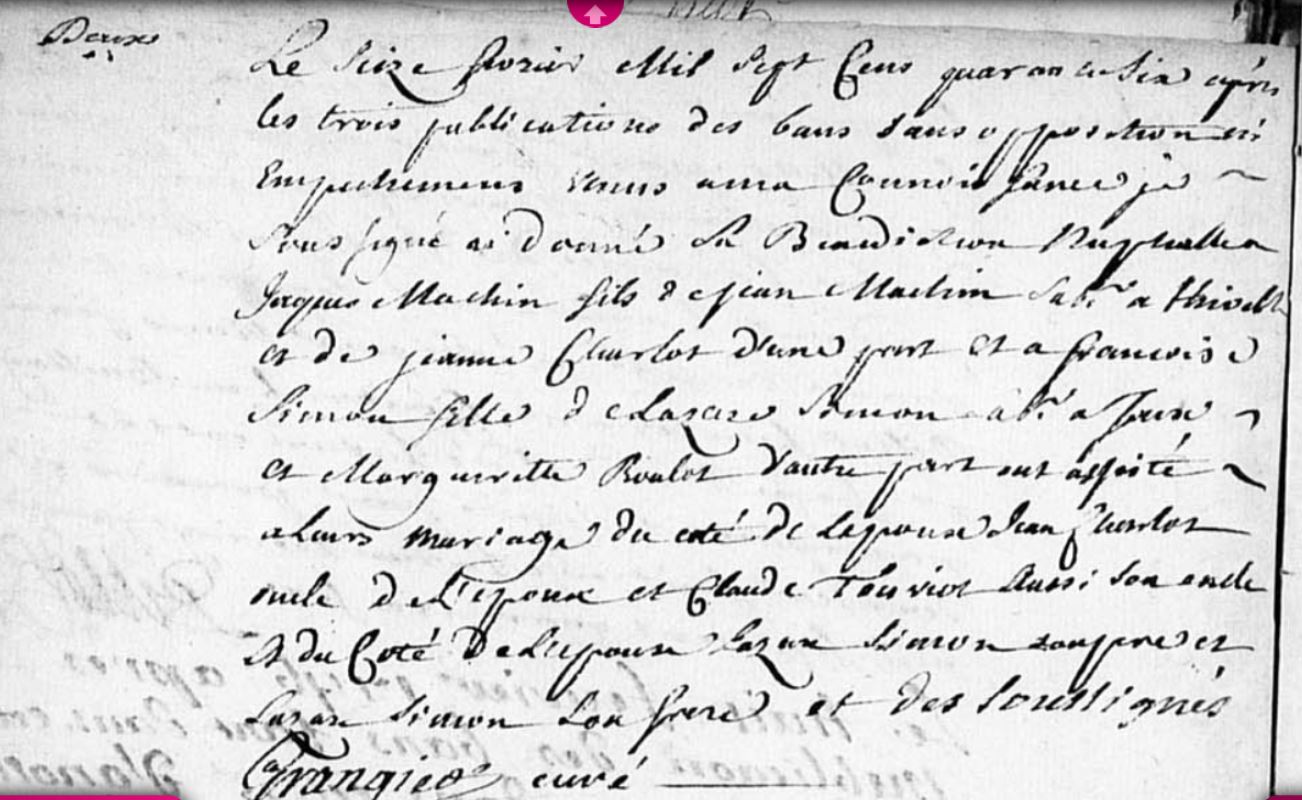 Deux
Le Seize fevrier Mil Sept Cens quarante Six après
les trois publications des bans sans opposition ni
Empechemens venus a ma Connoissance je
Soussigné ai donné La Benediction Nuptialle a
Jacques Machin fils de jean Machin Labr a
et de jeanne Charlot d'une part et a francoise
Simon fille de Lazare Simon a
et Margueritte Boulot d'autre part ont assisté
a Leurs mariage du coté de Lepoux Jean Charlot
oncle de L'epoux et Claude Thuriot Aussi Son oncle
Et du Coté de L'epouse Lazare Simon son pere et
Lazare Simon Son frere et des Soussignés
curé